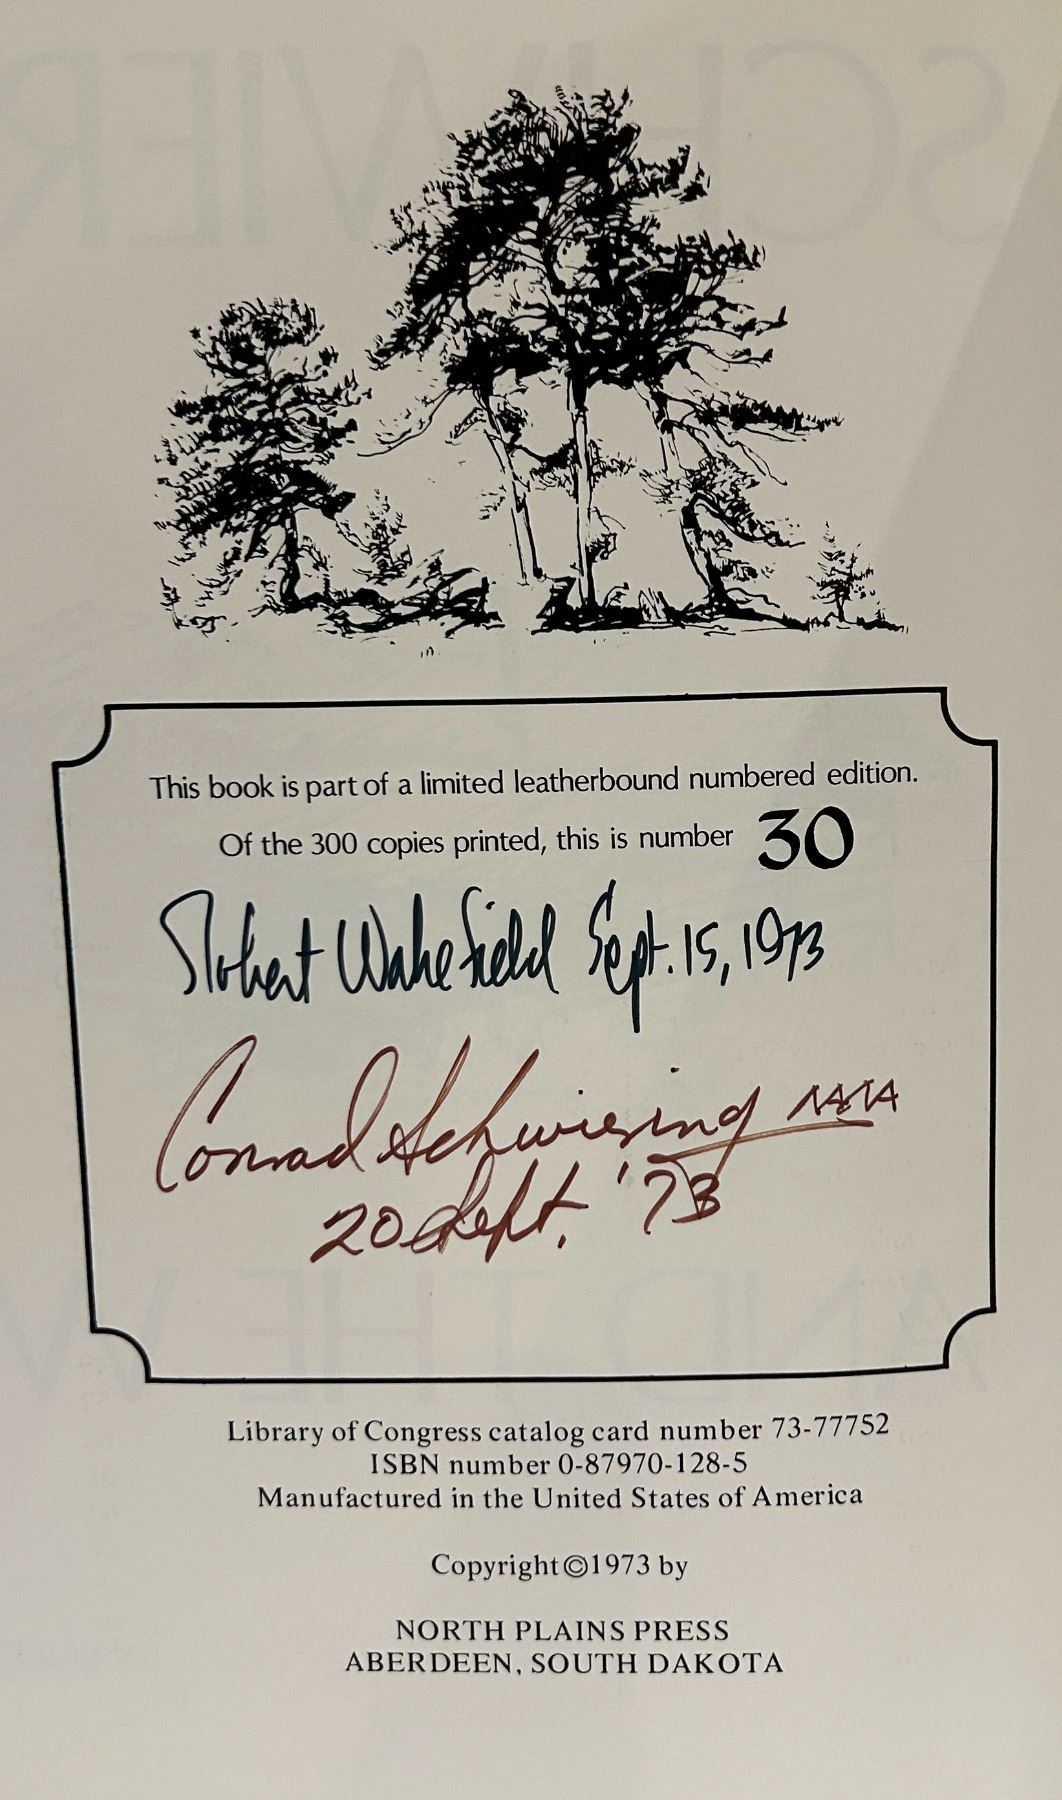 This book is part of a limited leatherbound numbered edition.
Of the 300 copies printed, this is number 30
Robert Wakefield Sept. 15, 1973
Conrad Schwiering NATA
20 Sept. '73
Library of Congress catalog card number 73-77752
ISBN number 0-87970-128-5
Manufactured in the United States of America
Copyright©1973 by
NORTH PLAINS PRESS
ABERDEEN, SOUTH DAKOTA